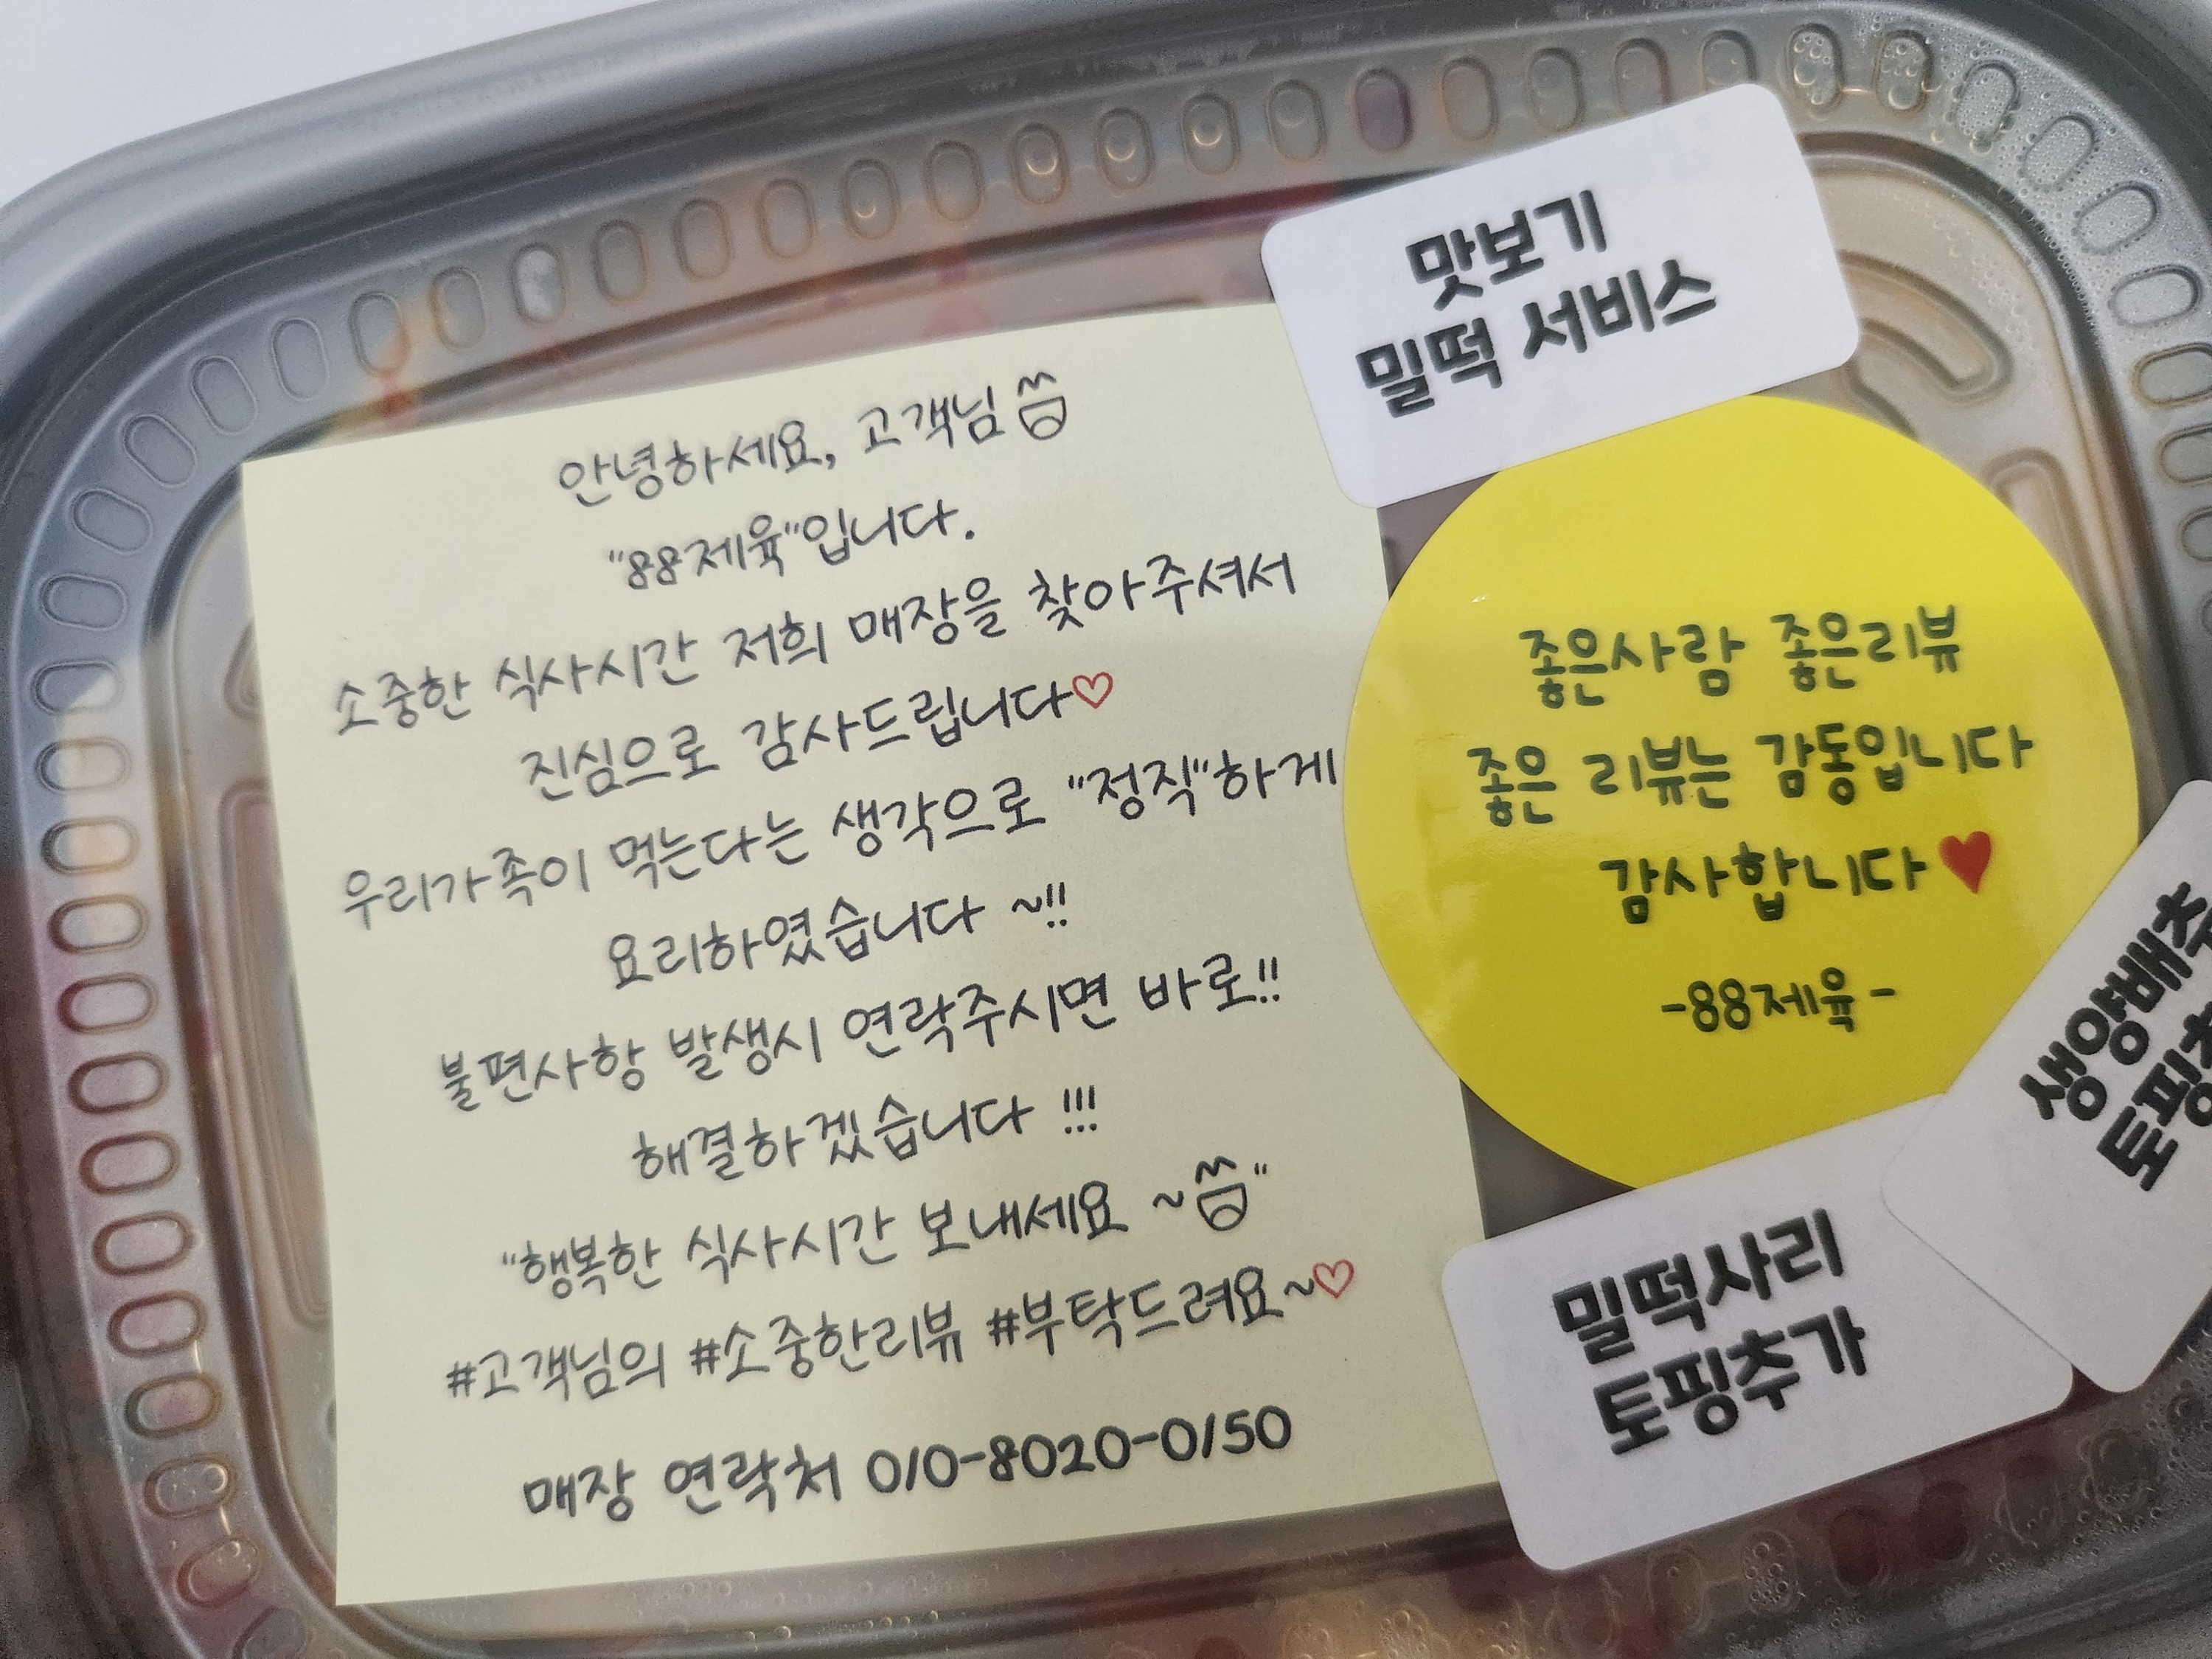 안녕하세요, 고객님
"88제육"입니다.
소중한 식사시간 저희 매장을 찾아주셔서
진심으로 감사드립니다♡
우리가족이 먹는다는 생각으로 "정직"하게
요리하였습니다 ~!!
불편사항 발생시 연락주시면 바로!!
해결하겠습니다 !!!
"행복한 식사시간 보내세요 ~"
#고객님의 #소중한리뷰 #부탁드려요~♡
매장 연락처 010-8020-0150
맛보기
밀떡 서비스
좋은사람 좋은리뷰
좋은 리뷰는 감동입니다
감사합니다♥
-88제육-
생양배추
밀떡사리
토핑추가